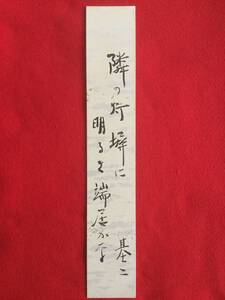 隣の灯塀に
明るき端居かな
基二